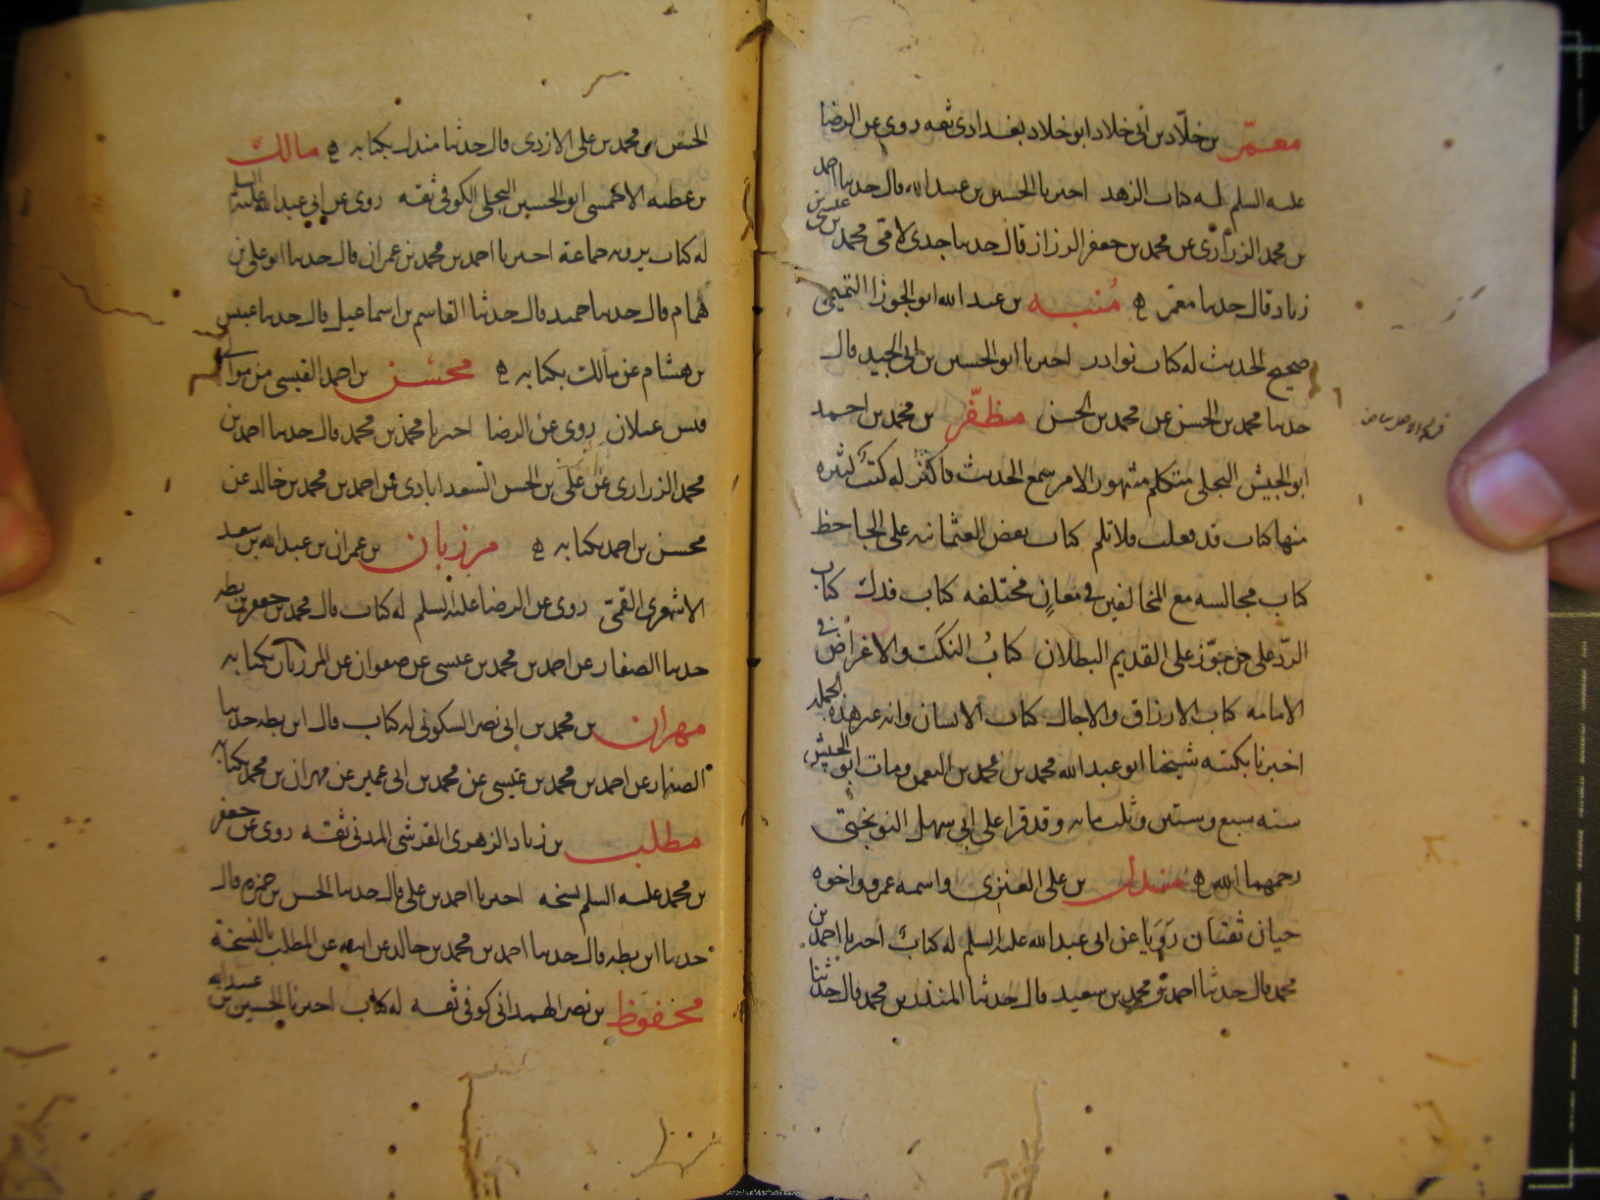 معمّر بن خلّاد بن ابي خلاد ابو خلاد بغدادى ثقه روى عن الرضا
عليه السلم له كتاب الزهد اخبرنا الحسين بن عبيد الله قال حدثنا احمد
بن محمد الزرارى عن محمد بن جعفر الرزاز قال حدثنا جدى لامى محمد بن عيسى بن
زياد قال حدثنا معمر ه مُنبه بن عبد الله ابو الجوزا التميمى
صحيح الحديث له كتاب نوادر اخبرنا ابو الحسين بن ابى الجيد قال
حدثنا محمد بن الحسن عن محمد بن الحسن مظفّر بن محمد بن احمد
ابو الجيش البلخى متكلم مشهور الامر سمع الحديث فاكثر له كتب كثيره
منها كتاب قد فعلت فلا تلم كتاب نقض العثمانيه على الجاحظ
كتاب مجالسه مع المخالفين فى معانٍ مختلفه كتاب فدك كتاب
الردّ على من جوّز على القديم البطلان كتابُ النكَت والاغراض فى
الامامه كتاب الارزاق والاجال كتاب الانسان وانه غير هذه الجمله
اخبرنا بكتبه شيخنا ابو عبد الله محمد بن محمد بن النعمن ومات ابو الجيش
سنه سبع وستين وثلثمايه وقد قرا على ابي سهل النوبختى
رحمهما الله ه مندل بن على العنزى واسمه عمرو واخوه
حيان ثقتان رَوَيا عن ابى عبد الله عليه السلم له كتابٌ اخبرنا احمد بن
محمد قال حدثنا احمد بن محمد بن سعيد قال حدثنا المنذر بن محمد قال حدثنا
الحسن بن محمد بن على الازدى قال حدثنا مندل بكتابه ه مالك
بن عطيه الاحمسى ابو الحسين البجلى الكوفى ثقه روى عن ابي عبد الله عليه السلم
له كتاب يرويه جماعة اخبرنا احمد بن محمد بن عمران قال حدثنا ابو على بن
همام قال حدثنا حميد قال حدثنا القاسم بن اسماعيل قال حدثنا عبيس
بن هشام عن مالك بكتابه ه محسّن بن احمد القيسى من موالى
قيس عيلان روى عن الرضا اخبرنا محمد بن محمد قال حدثنا احمد بن
محمد الزرارى عن على بن الحسن السعدابادى عن احمد بن محمد بن خالد عن
محسن بن احمد بكتابه ه مرزبان بن عمران بن عبد الله بن سعد
الاشعرى القمّى روى عن الرضا عليه السلم له كتاب قال محمد بن جعفر بن بطه
حدثنا الصفار عن احمد بن محمد بن عيسى عن صفوان عن المرزبان بكتابه
مهران بن محمد بن ابى نصر السكونى له كتاب قال ابن بطه حدثنا
الصفار عن احمد بن محمد بن عيسى عن محمد بن ابى عمير عن مهران بن محمد بكتابه
مطلب بن زياد الزهرى القرشى المدنى ثقه روى عن جعفر
بن محمد عليه السلم نسخه اخبرنا احمد بن على قال حدثنا الحسن بن حمزه قال
حدثنا ابن بطه قال حدثنا احمد بن محمد بن خالد عن ابيه عن المطلب بالنسخة
محفوظ بن نصر الهمدانى كوفى ثقه له كتاب اخبرنا الحسين بن عبيد الله